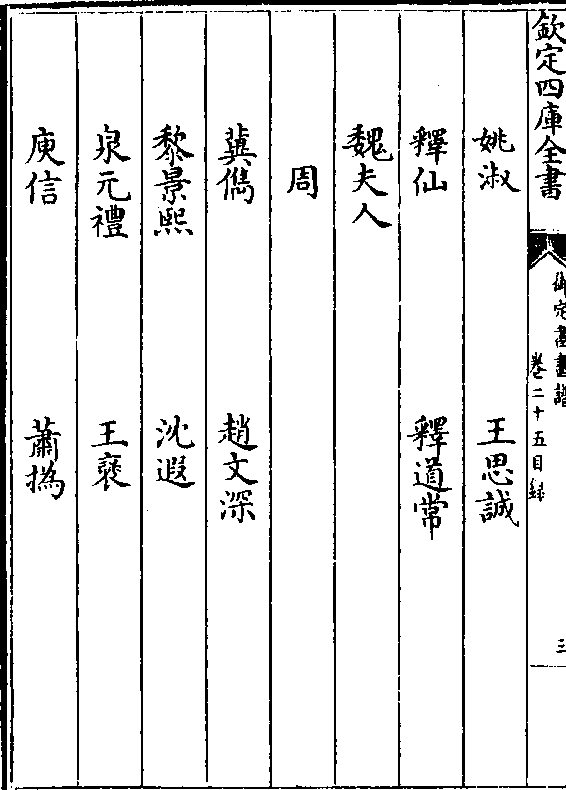 欽定四庫全書
御定書畫譜
卷二十五目録
三
姚淑 王思誠
釋仙 釋道常
魏夫人
周
冀儁 趙文深
黎景熙 沈遐
泉元禮 王襃
庾信 蕭撝